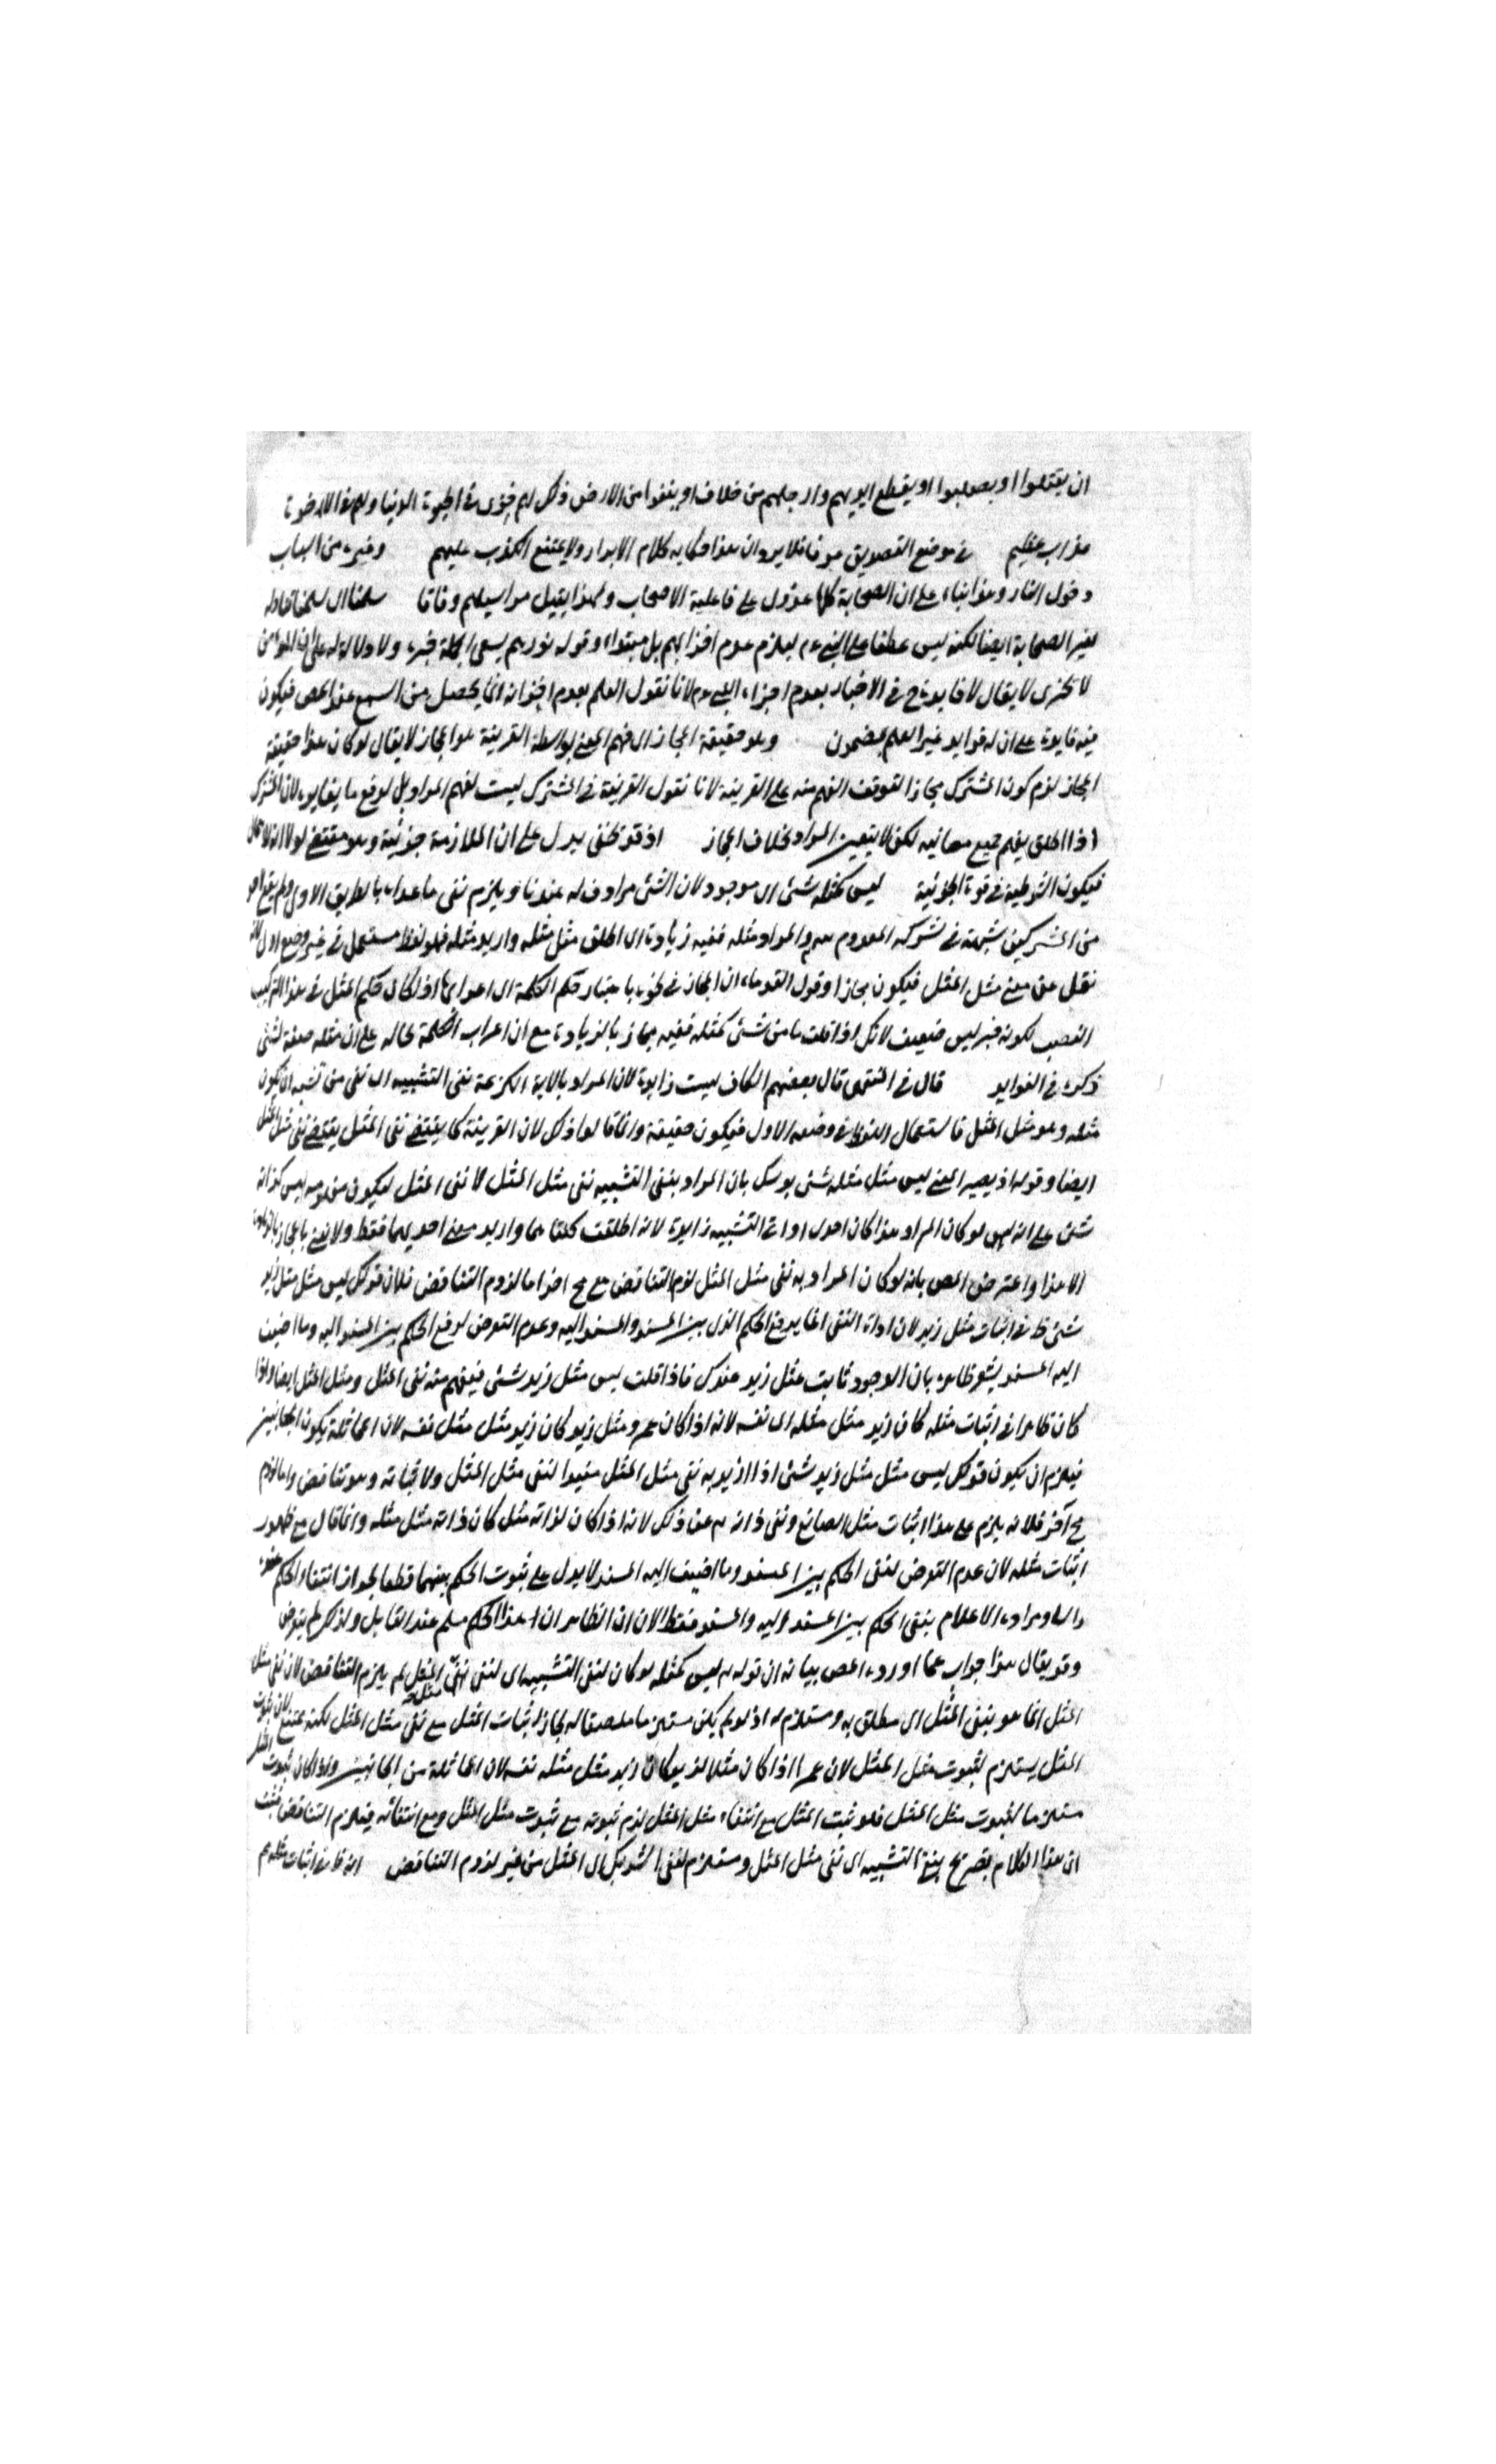 ان يقتلوا او يصلبوا او يقطع ايديهم وارجلهم من خلاف او ينفوا من الارض ذلك لهم خزى فى الحيوة الدنيا ولهم فى الاخرة
عذاب عظيم فى موضع التصديق عرفا فلا يرد ان هذا حكاية كلام الابرار ولا يمتنع الكذب عليهم وغيره من اسباب
دخول النار وهذا بناء على ان الصحابة كلها عدول على قاعدة الاصحاب ولهذا يقبل مراسيلهم وفاقا سلمنا اى سلمنا
لغير الصحابة ايضا لكنه ليس عطفا على النبى عم ليلزم عدم اخزائهم بل مبتداء وقوله نورهم يسعى الجملة خبره ولا دلالة له على ان المؤمن
لا يخزى لا يقال لا فايدة ح فى الاخبار بعدم اخزاء النبى عم لانا نقول العلم بعدم اخزائه انما يحصل من السمع عند المص فيكون
فيه فايدة على ان له فوايد غير العلم بمضمون وهو حقيقة المجاز اى فهم المعنى بواسطة القرينة هو المجاز لا يقال لو كان هذا حقيقة
المجاز لزم كون المشترك مجازا لتوقف الفهم منه على القرينة لانا نقول القرينة فى المشترك ليست لفهم المراد بل لدفع ما يقابله لان المشترك
اذا اطلق يفهم جميع معانيه لكن لا يتعين المراد بخلاف المجاز اذ قوله ظنى يدل على ان الملازمة جزئية وهو مقتضى لو لانه للاهمال
فيكون الشرطية فى قوة الجزئية ليس كمثله شئ اى موجود لان الشئ مرادف له عندنا ويلزم نفى ما عداه بالطريق الاولى ولم يقع لاحد
من المشركين شبهة فى شركة المعدوم معه والمراد مثله ففيه زيادة اى اطلق مثل مثله واريد مثله فهو لفظ مستعمل فى غير وضع اول لانه
نقل عن معنى مثل المثل فيكون مجازا وقول القدماء ان المجاز فى نحوه باعتبار حكم الكلمة اى اعرابها اذ كان حكم المثل فى هذا التركيب
النصب لكونه خبر ليس ضعيف لانك اذا قلت ما من شئ كمثله ففيه مجاز بالزيادة مع ان اعراب الكلمة بحاله على ان مثله صفة لشئ
ذكره فى الفوايد قال فى المنتهى قال بعضهم الكاف ليست زايدة لان المراد بالاية الكريمة نفى التشبيه اى نفى من تشبه ان يكون
مثله وهو مثل المثل فاستعمال اللفظ فى وضعه الاول فيكون حقيقة وانما قالوا ذلك لان القرينة كما يقتضى نفى المثل يقتضى نفى مثل المثل
ايضا وقوله اذ يصير المعنى ليس مثل مثله شئ يؤكد بان المراد بنفى التشبيه نفى مثل المثل لا نفى المثل ليكون مفهومه ليس كذاته
شئ على انه لو كان المراد هذا كان احدى اداتى التشبيه زايدة لانه اطلقت كلتاهما واريد معنى احديهما فقط ولا نعنى بالمجاز بالزيادة
الا هذا واعترض المص بانه لو كان المراد به نفى مثل المثل لزم التناقض مع مح اخر اما لزوم التناقض فلان قولك ليس مثل مثل زيد
شئ ظ فى اثبات مثل زيد لان اداة النفى انما يدفع الحكم الذى بين المسند والمسند اليه وعدم التعرض لرفع الحكم بين المسند اليه وما اضيف
اليه المسند يشعر ظاهره بان الوجود ثابت لمثل زيد عندك فاذا قلت ليس مثل زيد شئ فيفهم منه نفى المثل ومثل المثل ايضا واذا
كان ظاهرا فى اثبات مثله كان زيد مثل مثله اى نفسه لانه اذا كان عمرو مثل زيد كان زيد مثل مثل نفسه لان المماثلة يكون الجانبين
فيلزم ان يكون قولك ليس مثل مثل زيد شئ اذا اريد به نفى مثل المثل مفيدا لنفى مثل المثل ولاثباته وهو تناقض واما لزوم
مح آخر فلانه يلزم على هذا اثبات مثل الصانع ونفى ذاته تعالى عن ذلك لانه اذا كان لذاته مثل كان ذاته مثل مثله وانما قال مع ظهور
اثبات مثله لان عدم التعرض لنفى الحكم بين المسند وما اضيف اليه المسند لا يدل على ثبوت الحكم بينهما قطعا لجواز انتفاء الحكم عنده
ومراده الاعلام بنفى الحكم بين المسند اليه والمسند فقط الا ان الظاهر ان هذا الحكم مسلم عند القايل ولذلك لم يتعرض
وقد يقال هذا جواب عما اورده المص بيانه ان قوله تعالى ليس كمثله لو كان لنفى التشبيه اى لنفى مثل المثل لم يلزم التناقض لان نفى مثل
المثل انما هو بنفى المثل اى مطلق به ومستلزم له اذ لو لم يكن مستلزما ملاصقا له لجاز اثبات المثل مع نفى مثل المثل لكنه ممتنع لان ثبوت
المثل يستلزم لثبوت مثل المثل لان عمرا اذا كان مثلا لزيد كان زيد مثل مثله نفسه لان المماثلة من الجانبين واذا كان ثبوت المثل
مستلزما لثبوت مثل المثل فلو ثبت المثل مع انتفاء مثل المثل لزم ثبوته مع ثبوت مثل المثل ومع انتفائه فيلزم التناقض فثبت
ان هذا الكلام تصريح بنفى التشبيه اى نفى مثل المثل ومستلزم لنفى الشريك اى المثل من غير لزوم التناقض انه ظ فى اثبات مثله